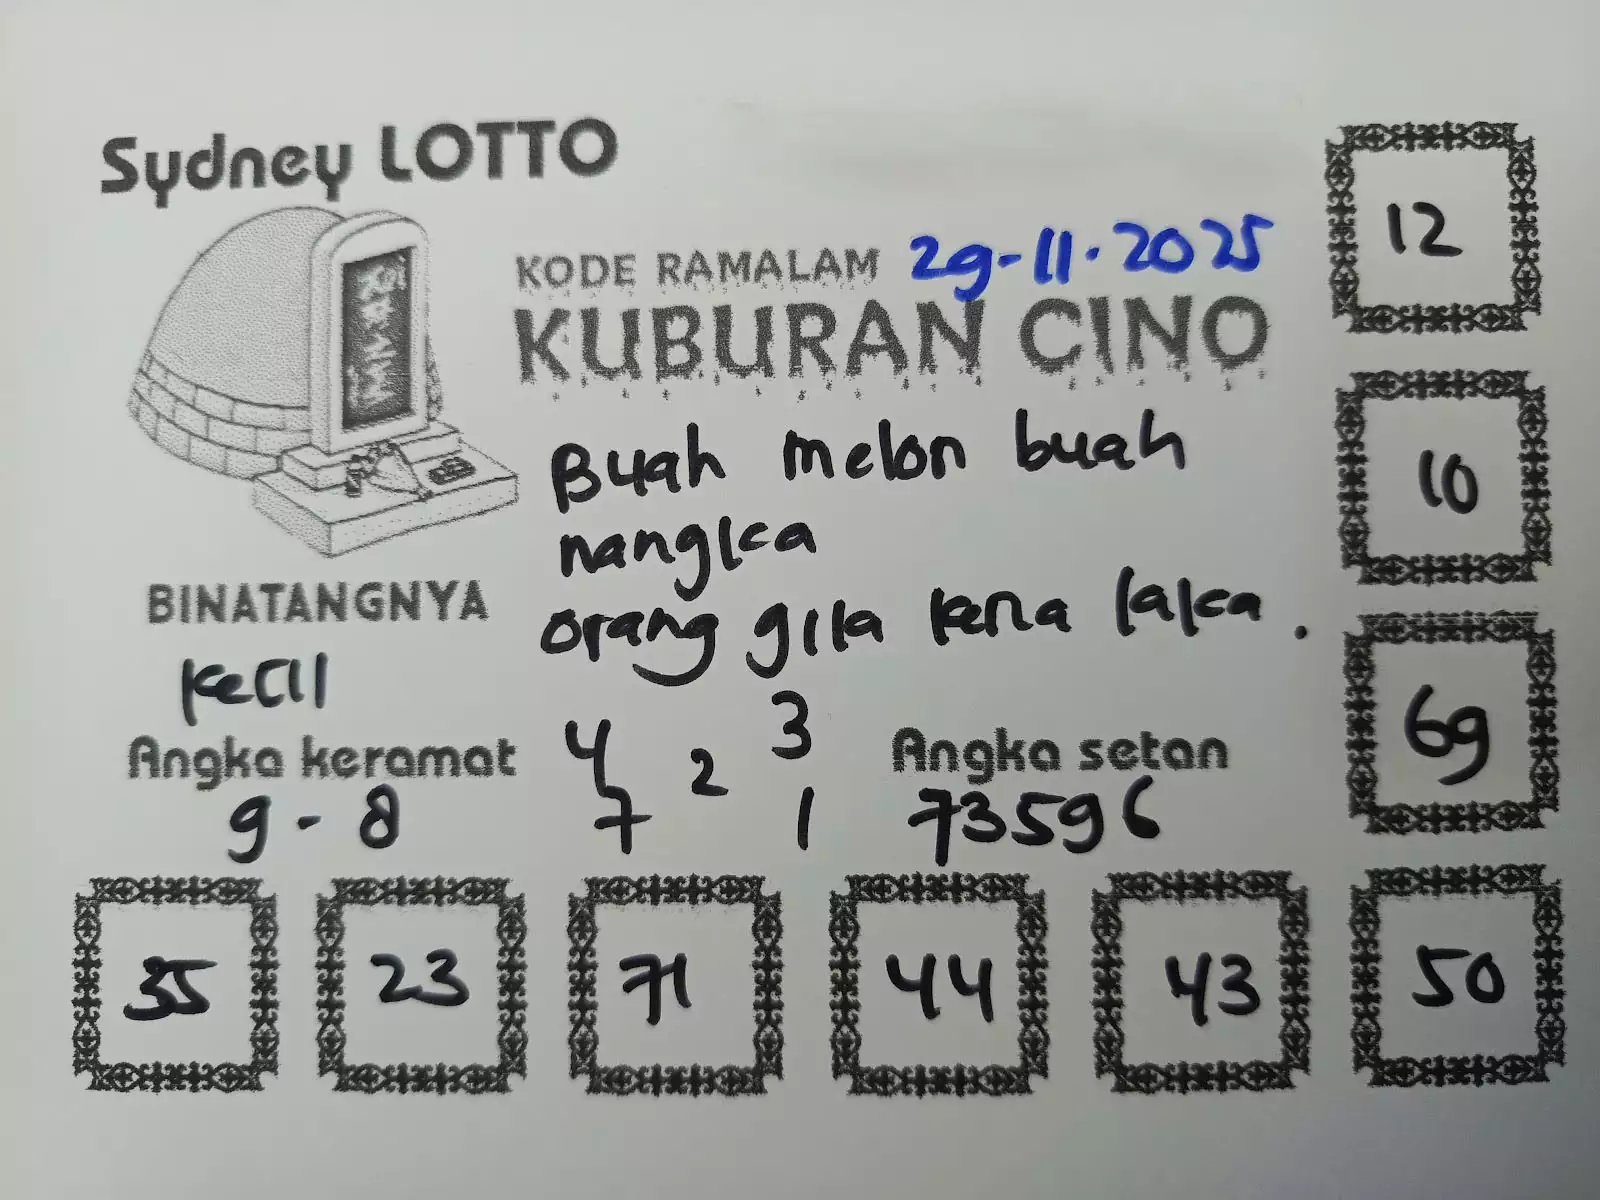 Sydney LOTTO
KODE RAMALAM 29-11-2025
KUBURAN CINO
Buah melon buah
nangka
orang gila kena laka.
BINATANGNYA
kecil
Angka keramat
9-8
4 2 3
7 1
Angka setan
73596
12
10
69
35 23 71 44 43 50